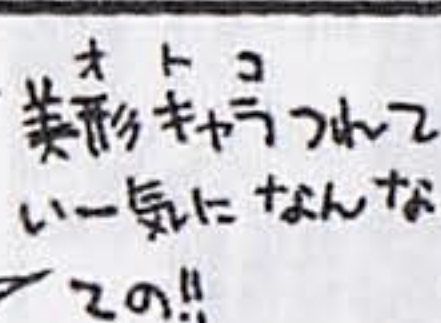 オトコ
美形キャラつれて
いー気になんな
ての!!